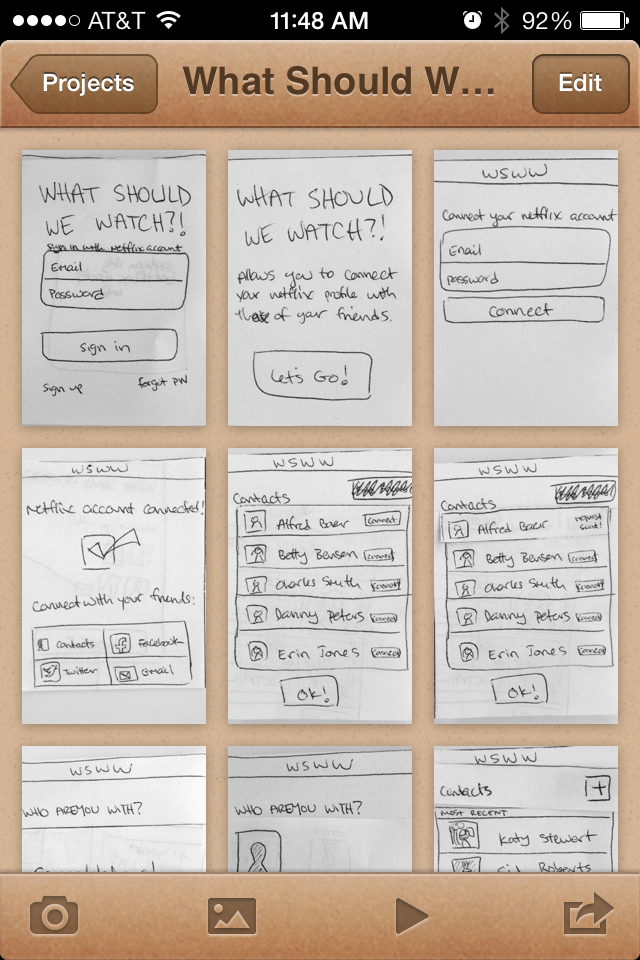 AT&T 11:48 AM 92%
Projects What Should W... Edit
WHAT SHOULD
WE WATCH?!
Sign in with Netflix account
Email
Password
sign in
sign up forgot PW
WHAT SHOULD
WE WATCH?!
Allows you to connect
your netflix profile with
those of your friends.
Let's Go!
WSWW
Connect your netflix account
Email
password
Connect
WSWW
Netflix account connected!
Connect with your friends:
Contacts Facebook
Twitter Email
WSWW
Contacts
Alfred Baer connect
Betty Bensen connect
Charles Smith connect
Danny Peters connect
Erin Jones connect
OK!
WSWW
Contacts
Alfred Baer request
sent!
Betty Bensen connect
Charles Smith connect
Danny Peters connect
Erin Jones connect
OK!
WSWW
WHO ARE YOU WITH?
WSWW
WHO ARE YOU WITH?
WSWW
Contacts +
MOST RECENT
Katy Stewart
Roberts